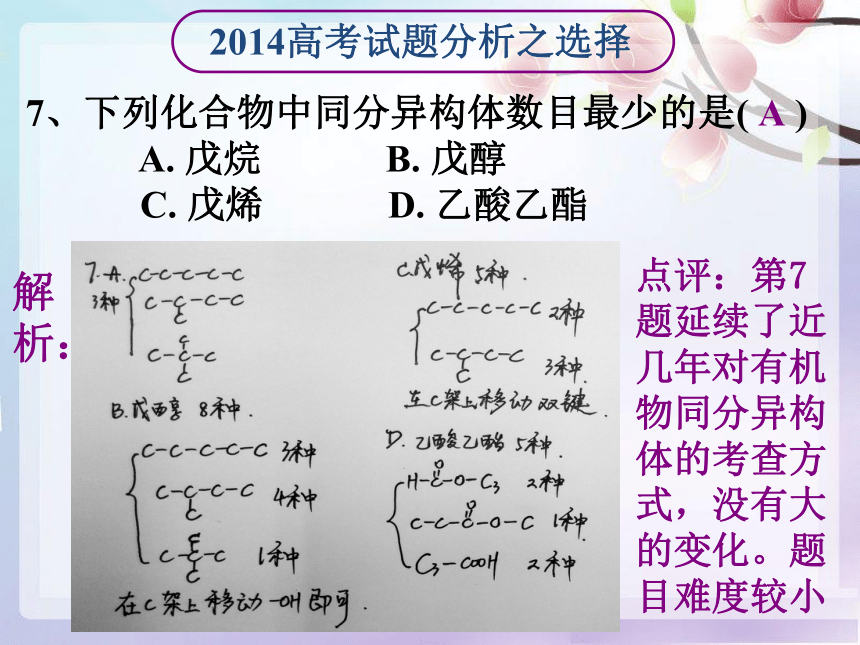 2014高考试题分析之选择
7、下列化合物中同分异构体数目最少的是( A )
A. 戊烷 B. 戊醇
C. 戊烯 D. 乙酸乙酯
解
析：
7.A. C-C-C-C-C
3种
C-C-C-C
C
C
C-C-C
C
B.戊醇 8种.
C-C-C-C-C 3种
C-C-C-C 4种
C
C
C-C-C 1种
C
在C架上移动-OH即可.
C.戊烯 5种.
C-C-C-C-C 2种
C-C-C-C 3种.
C
在C架上移动双键.
D. 乙酸乙酯 5种.
O
H-C-O-C3 2种
O
C-C-C-O-C 1种
C3-COOH 2种
点评：第7
题延续了近
几年对有机
物同分异构
体的考查方
式，没有大
的变化。题
目难度较小